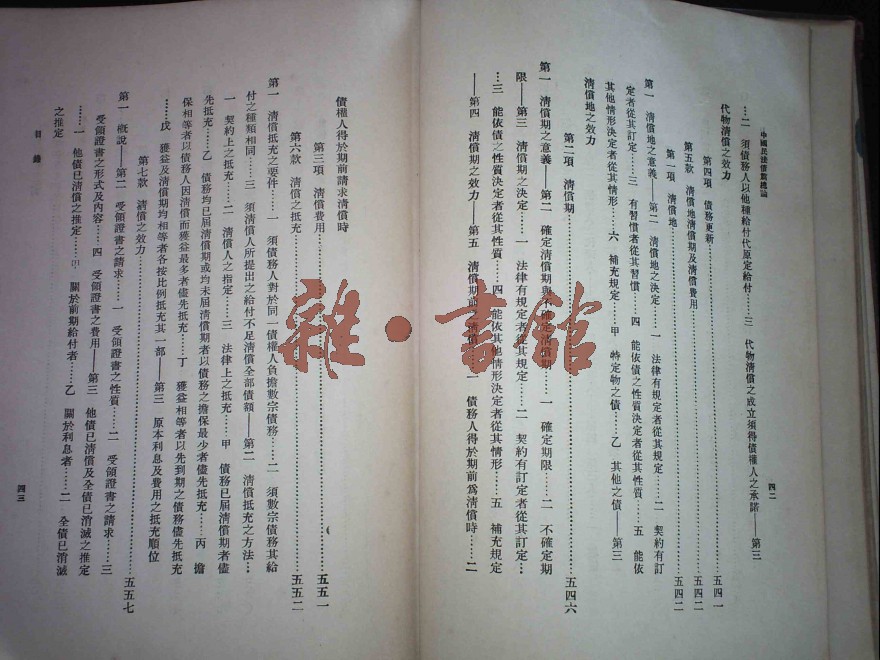 中國民法債篇總論
四二
……二　須債務人以他種給付代原定給付……三　代物清償之成立須得債權人之承諾——第三
代物清償之效力
第四項　債務更新……五四一
第五款　清償地清償期及清償費用……五四二
第一項　清償地……五四二
第一　清償地之意義——第二　清償地之決定……一　法律有規定者從其規定……二　契約有訂
定者從其訂定……三　有習慣者從其習慣……四　能依債之性質決定者從其性質……五　能依
其他情形決定者從其情形……六　補充規定……甲　特定物之債……乙　其他之債——第三
清償地之效力
第二項　清償期……五四六
第一　清償期之意義——第二　確定清償期與不確定清償期……一　確定期限……二　不確定期
限——第三　清償期之決定……一　法律有規定者從其規定……二　契約有訂定者從其訂定…
…三　能依債性質決定者從其性質……四　能依其他情形決定者從其情形……五　補充規定
——第四　清償期之效力——第五　清償期前之清償……一　債務人得於期前為清償時……二
債權人得於期前請求清償時
第三項　清償費用……五五一
第六款　清償之抵充……五五二
第一　清償抵充之要件……一　須債務人對於同一債權人負擔數宗債務……二　須數宗債務其給
付之種類相同……三　須清償人所提出之給付不足清償全部債額——第二　清償抵充之方法…
一　契約上之抵充……二　清償人之指定……三　法律上之抵充……甲　債務已屆清償期者儘
先抵充……乙　債務均已屆清償期或均未屆清償期者以債務之擔保最少者儘先抵充……丙　擔
保相等者以債務人因清償而獲益最多者儘先抵充……丁　獲益相等者以先到期之債務儘先抵充
……戊　獲益及清償期均相等者各按比例抵充其一部——第三　原本利息及費用之抵充順位
第七款　清償之效力……五五七
第一　概說——第二　受領證書之請求……一　受領證書之性質……二　受領證書之請求……三
受領證書之形式及內容……四　受領證書之費用——第三　他債已清償及全債已消滅之推定
……一　他債已清償之推定……甲　關於前期給付者……乙　關於利息者……二　全債已消滅
之推定
目錄
四三
雜·書館